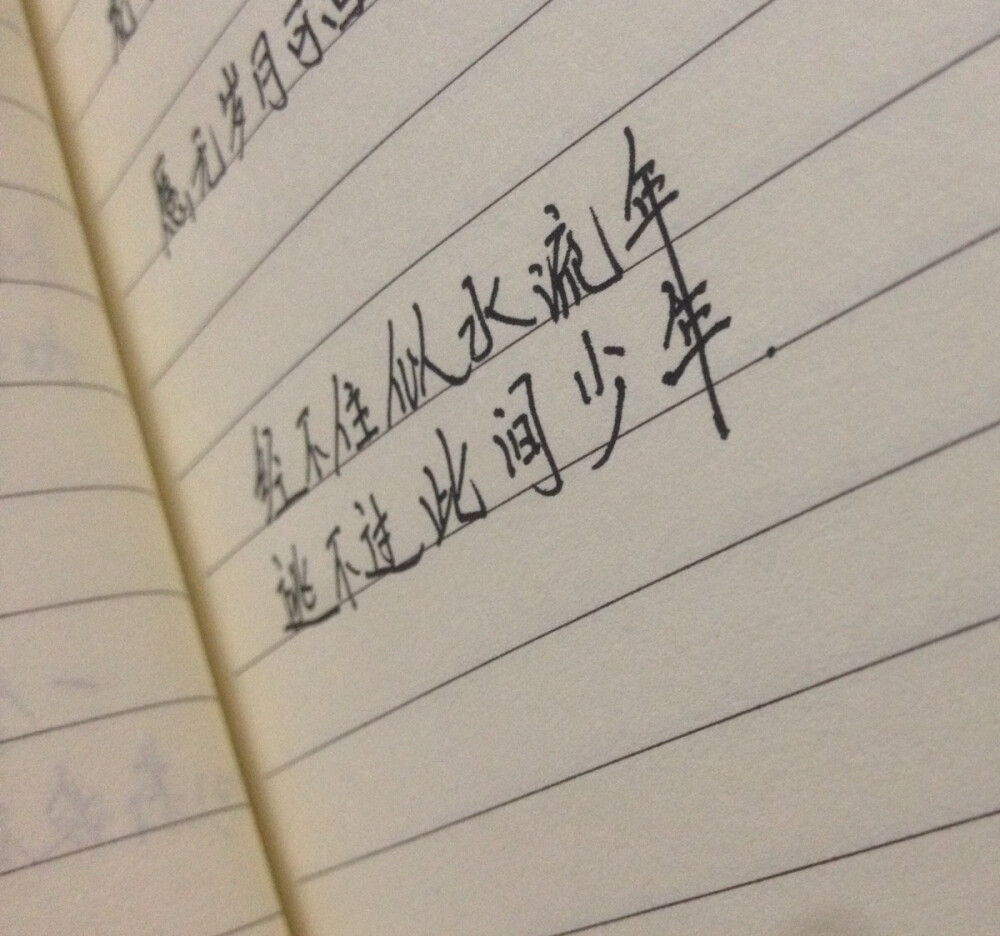 愿无岁月可
经不住似水流年
逃不过此间少年.